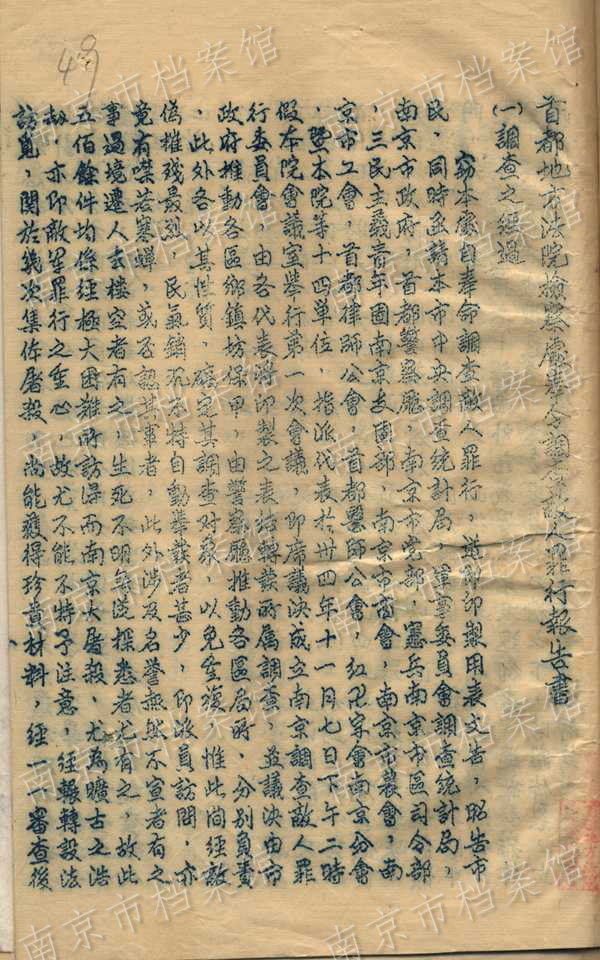 48
首都地方法院檢察處奉令調查敵人罪行報告書
(一)調查之經過
窃本處自奉命調查敵人罪行,遵即印製用表文告,昭告市
民,同時函請本市中央調查統計局,軍事委員會調查統計局,
南京市政府,首都警察廳,南京市党部,憲兵南京市區司令部
,三民主義青年團南京支團部,南京市商會,南京市農會,南
京市工會,首都律師公會,首都醫師公會,紅卍字會南京分會
,暨本院等十四單位,指派代表於卅四年十一月七日下午二時
假本院會議室舉行第一次會議,即席議決成立南京調查敵人罪
行委員會,由各代表將印製之表結轉發所屬調查,並議決由市
政府推動各區鄉鎮坊保甲,由警察廳推動各區局所,分別負責
,此外各以其性質,確定其調查对象,以免重複,惟此间經敵
偽摧殘最烈,民氣銷沉,不特自動舉發者甚少,即派員訪問,亦
竟有噤若寒蟬,或否認其事者,此外涉及名譽無然不宣者有之
事過境遷人去楼空者有之,生死不明無從探悉者尤有之,故此
五佰餘件均係經極大困難所訪得而南京大屠殺,尤為曠古之浩
劫,亦即敵軍罪行之重心,故尤不能不特予注意,經輾轉設法
訪覓,関於幾次集体屠殺,尚能獲得珍貴材料,經一一審查後
南京市档案馆